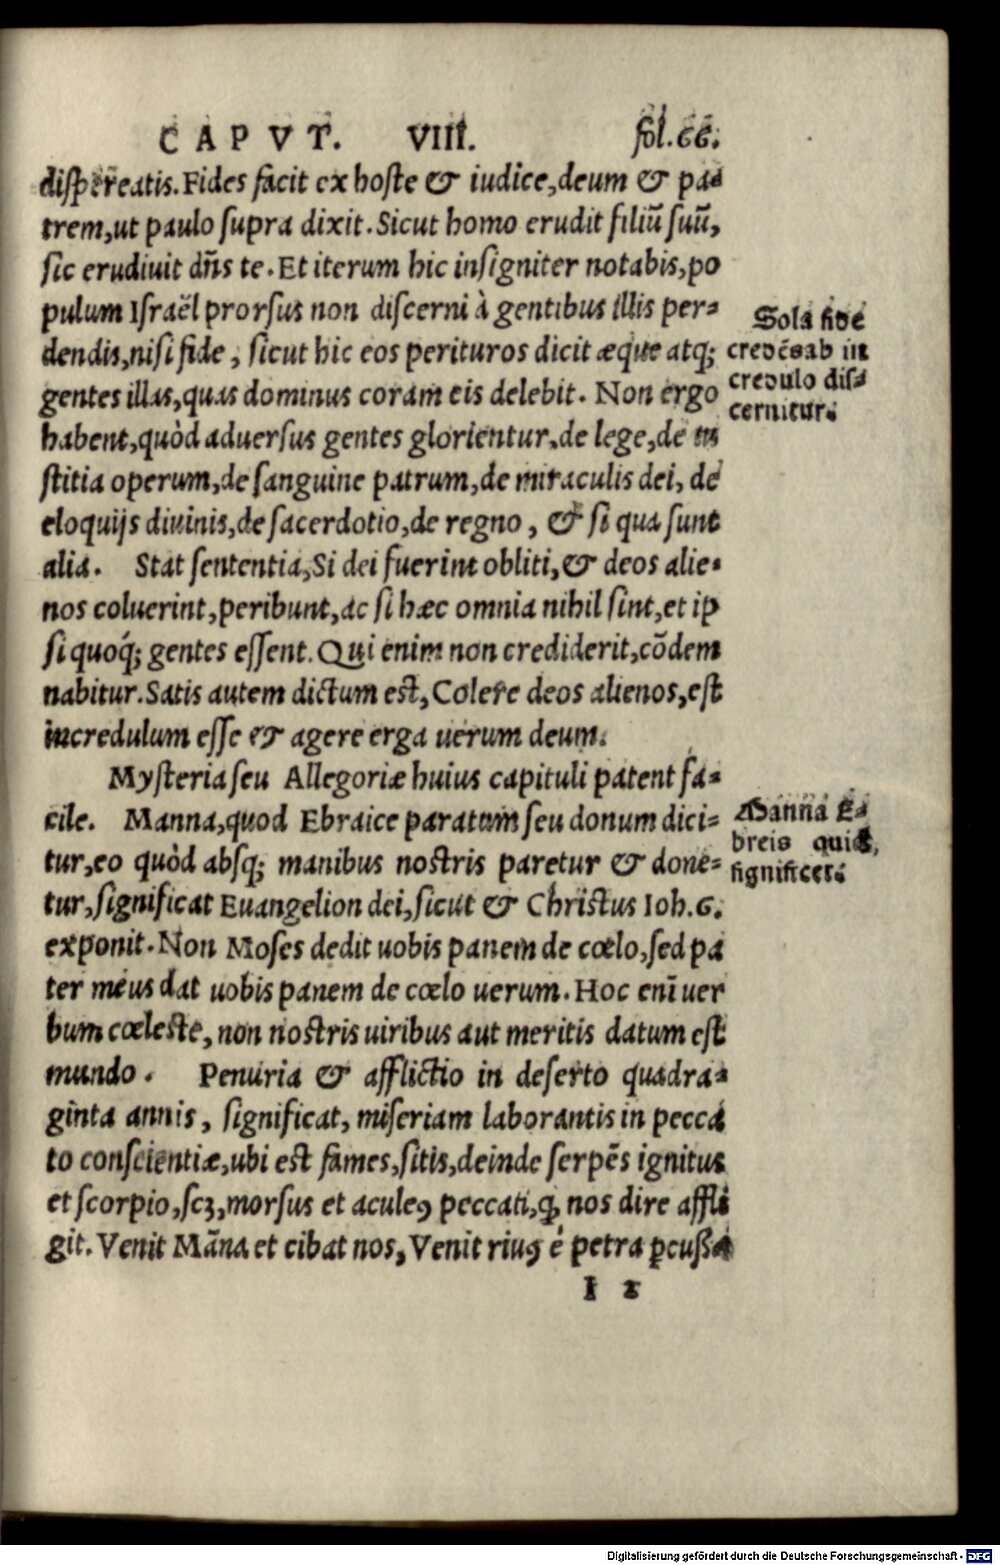 CAPVT. VIII. fol.66.
dispereatis. Fides facit ex hoste & iudice, deum & pa-
trem, ut paulo supra dixit. Sicut homo erudit filiū suū,
sic erudiuit dñs te. Et iterum hic insigniter notabis, po
pulum Israël prorsus non discerni à gentibus illis per-
dendis, nisi fide, sicut hic eos perituros dicit æque atq;
gentes illas, quas dominus coram eis delebit. Non ergo
habent, quòd aduersus gentes glorientur, de lege, de iu
stitia operum, de sanguine patrum, de miraculis dei, de
eloquijs diuinis, de sacerdotio, de regno, & si qua sunt
alia. Stat sententia, Si dei fuerint obliti, & deos alie-
nos coluerint, peribunt, ac si hæc omnia nihil sint, et ip
si quoq́; gentes essent. Qui enim non crediderit, cōdem
nabitur. Satis autem dictum est, Colere deos alienos, est
incredulum esse & agere erga uerum deum.
Sola fide
credēs ab in
credulo dis-
cernitur.
Mysteria seu Allegoriæ huius capituli patent fa-
cile. Manna, quod Ebraice paratum seu donum dici-
tur, eo quòd absq; manibus nostris paretur & done-
tur, significat Euangelion dei, sicut & Christus Ioh.6.
exponit. Non Moses dedit uobis panem de cœlo, sed pa
ter meus dat uobis panem de cœlo uerum. Hoc enī uer
bum cœleste, non nostris uiribus aut meritis datum est
mundo. Penuria & afflictio in deserto quadra-
ginta annis, significat, miseriam laborantis in pecca
to conscientiæ, ubi est fames, sitis, deinde serpēs ignitus
et scorpio, scꝫ, morsus et aculeꝰ peccati, q̧ nos dire affli
git. Venit Māna et cibat nos, Venit riuꝰ é petra ꝑcussa
Manna E-
breis quid,
significet.
I 2
Digitalisierung gefördert durch die Deutsche Forschungsgemeinschaft - DFG